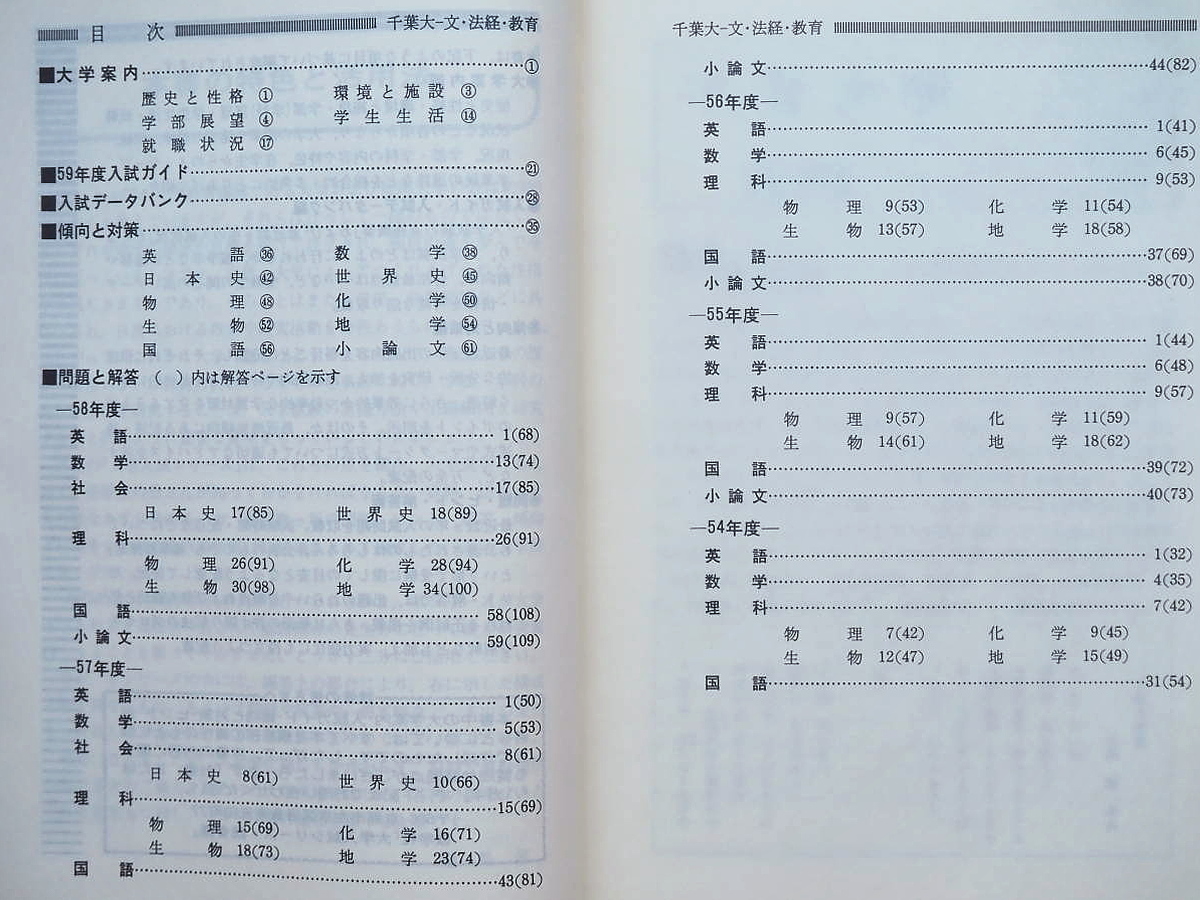 目次 千葉大-文・法経・教育
■大学案内……①
歴史と性格 ① 環境と施設 ③
学部展望 ④ 学生生活 ⑭
就職状況 ⑰
■59年度入試ガイド……㉑
■入試データバンク……㉘
■傾向と対策……㉟
英語 ㊱ 数学 ㊳
日本史 ㊷ 世界史 ㊺
物理 ㊽ 化学 ㊿
生物 52 地学 54
国語 56 小論文 61
■問題と解答 ( )内は解答ページを示す
―58年度―
英語……1(68)
数学……13(74)
社会……17(85)
日本史 17(85) 世界史 18(89)
理科……26(91)
物理 26(91) 化学 28(94)
生物 30(98) 地学 34(100)
国語……58(108)
小論文……59(109)
―57年度―
英語……1(50)
数学……5(53)
社会……8(61)
日本史 8(61) 世界史 10(66)
理科……15(69)
物理 15(69) 化学 16(71)
生物 18(73) 地学 23(74)
国語……43(81)
千葉大-文・法経・教育
小論文……44(82)
―56年度―
英語……1(41)
数学……6(45)
理科……9(53)
物理 9(53) 化学 11(54)
生物 13(57) 地学 18(58)
国語……37(69)
小論文……38(70)
―55年度―
英語……1(44)
数学……6(48)
理科……9(57)
物理 9(57) 化学 11(59)
生物 14(61) 地学 18(62)
国語……39(72)
小論文……40(73)
―54年度―
英語……1(32)
数学……4(35)
理科……7(42)
物理 7(42) 化学 9(45)
生物 12(47) 地学 15(49)
国語……31(54)